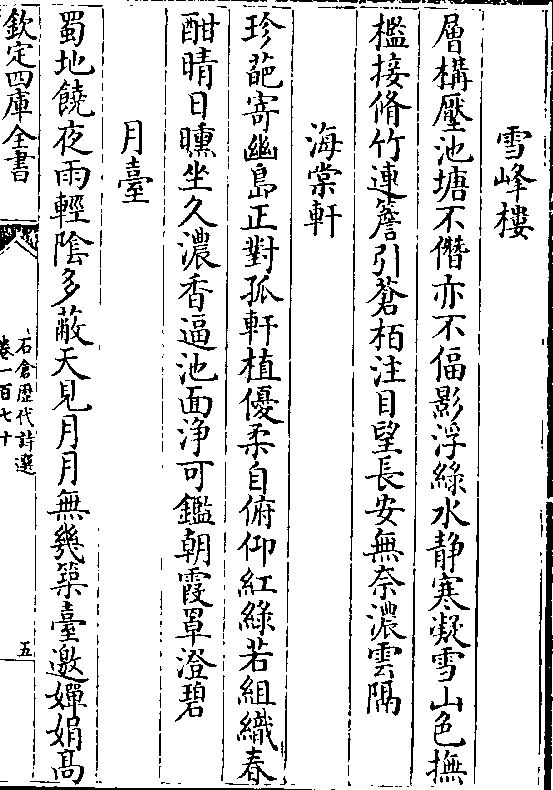 雪峰樓
層構壓池塘不僭亦不偪影浮綠水静寒凝雪山色撫
檻接脩竹連簷引蒼栢注目望長安無奈濃雲隔
海棠軒
珍葩寄幽島正對孤軒植優柔自俯仰紅綠若組織春
酣晴日曛坐久濃香逼池面浄可鑑朝霞罩澄碧
月臺
蜀地饒夜雨輕陰多蔽天見月月無幾築臺邀嬋娟髙
欽定四庫全書
石倉歴代詩選
卷一百七十
五